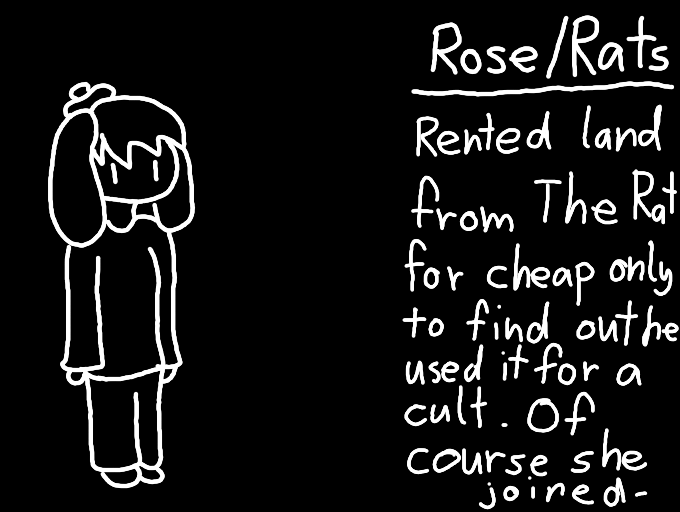 Rose/Rats
Rented land
from The Rat
for cheap only
to find out he
used it for a
cult. Of
course she
joined-